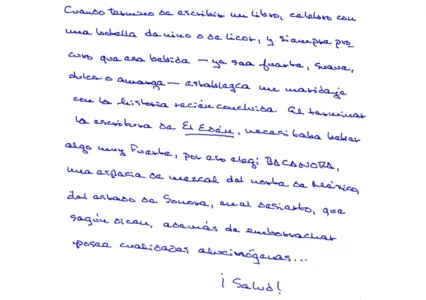 Cuando termino de escribir un libro, celebro con
una botella de vino o de licor, y siempre pro
curo que esa bebida — ya sea fuerte, suave,
dulce o amarga — establezca un maridaje
con la historia recién concluida. Al terminar
la escritura de El Edén, necesitaba beber
algo muy fuerte, por eso elegí BACANORA,
una especie de mezcal del norte de México,
del estado de Sonora, en el desierto, que
según dicen, además de emborrachar
posee cualidades alucinógenas...
¡Salud!